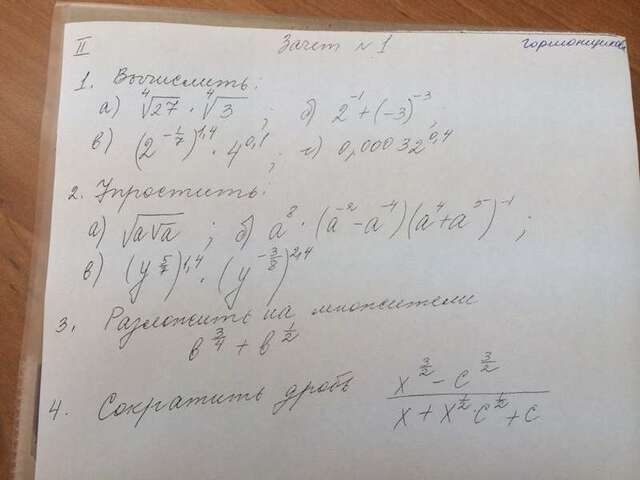 II Зачет № 1
1. Вычислить:
а) ⁴√27 · ⁴√3 ; б) 2⁻¹ + (-3)⁻³ ;
в) (2^(-1/7))^1,4 · 4^0,1 ; г) 0,00032^0,4
2. Упростить:
а) √(a√a) ; б) a⁸ · (a⁻² - a⁻⁴)(a⁴ + a⁵)⁻¹ ;
в) (y^(5/7))^1,4 · (y^(-3/8))^2,4
3. Разложить на множители
b^(3/4) + b^(1/2)
4. Сократить дробь (x^(3/2) - c^(3/2)) / (x + x^(1/2) c^(1/2) + c)